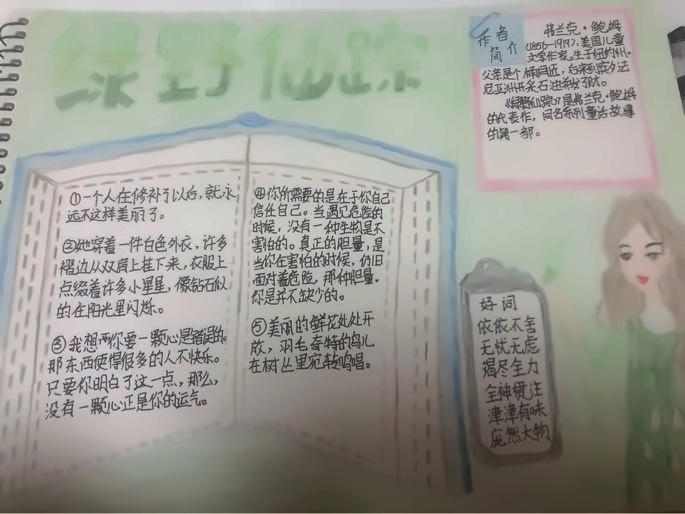 绿野仙踪
作者
简介
弗兰克·鲍姆
(1856-1919),美国儿童
文学作家。生于纽约州。
父亲是个桶匠,后来到宾夕法
尼亚州开采石油并发了财。
《绿野仙踪》是弗兰克·鲍姆
的代表作,同名系列童话故事
的第一部。
①一个人在修补了以后,就永
远不这样美丽了。
②她穿着一件白色外衣,许多
褶边从双肩上挂下来,衣服上
点缀着许多小星星,像钻石似
的在阳光里闪烁。
③我想你要一颗心是错误的。
那东西使得很多的人不快乐。
只要你明白了这一点,那么,
没有一颗心正是你的运气。
④你所需要的是在于你自己
信任自己。当遇见危险的
时候,没有一种生物是不
害怕的。真正的胆量,是
当你在害怕的时候,仍旧
面对着危险,那种胆量,
你是并不缺少的。
⑤美丽的鲜花处处开
放,羽毛奇特的鸟儿
在树丛里宛转鸣唱。
好词
依依不舍
无忧无虑
竭尽全力
全神贯注
津津有味
庞然大物